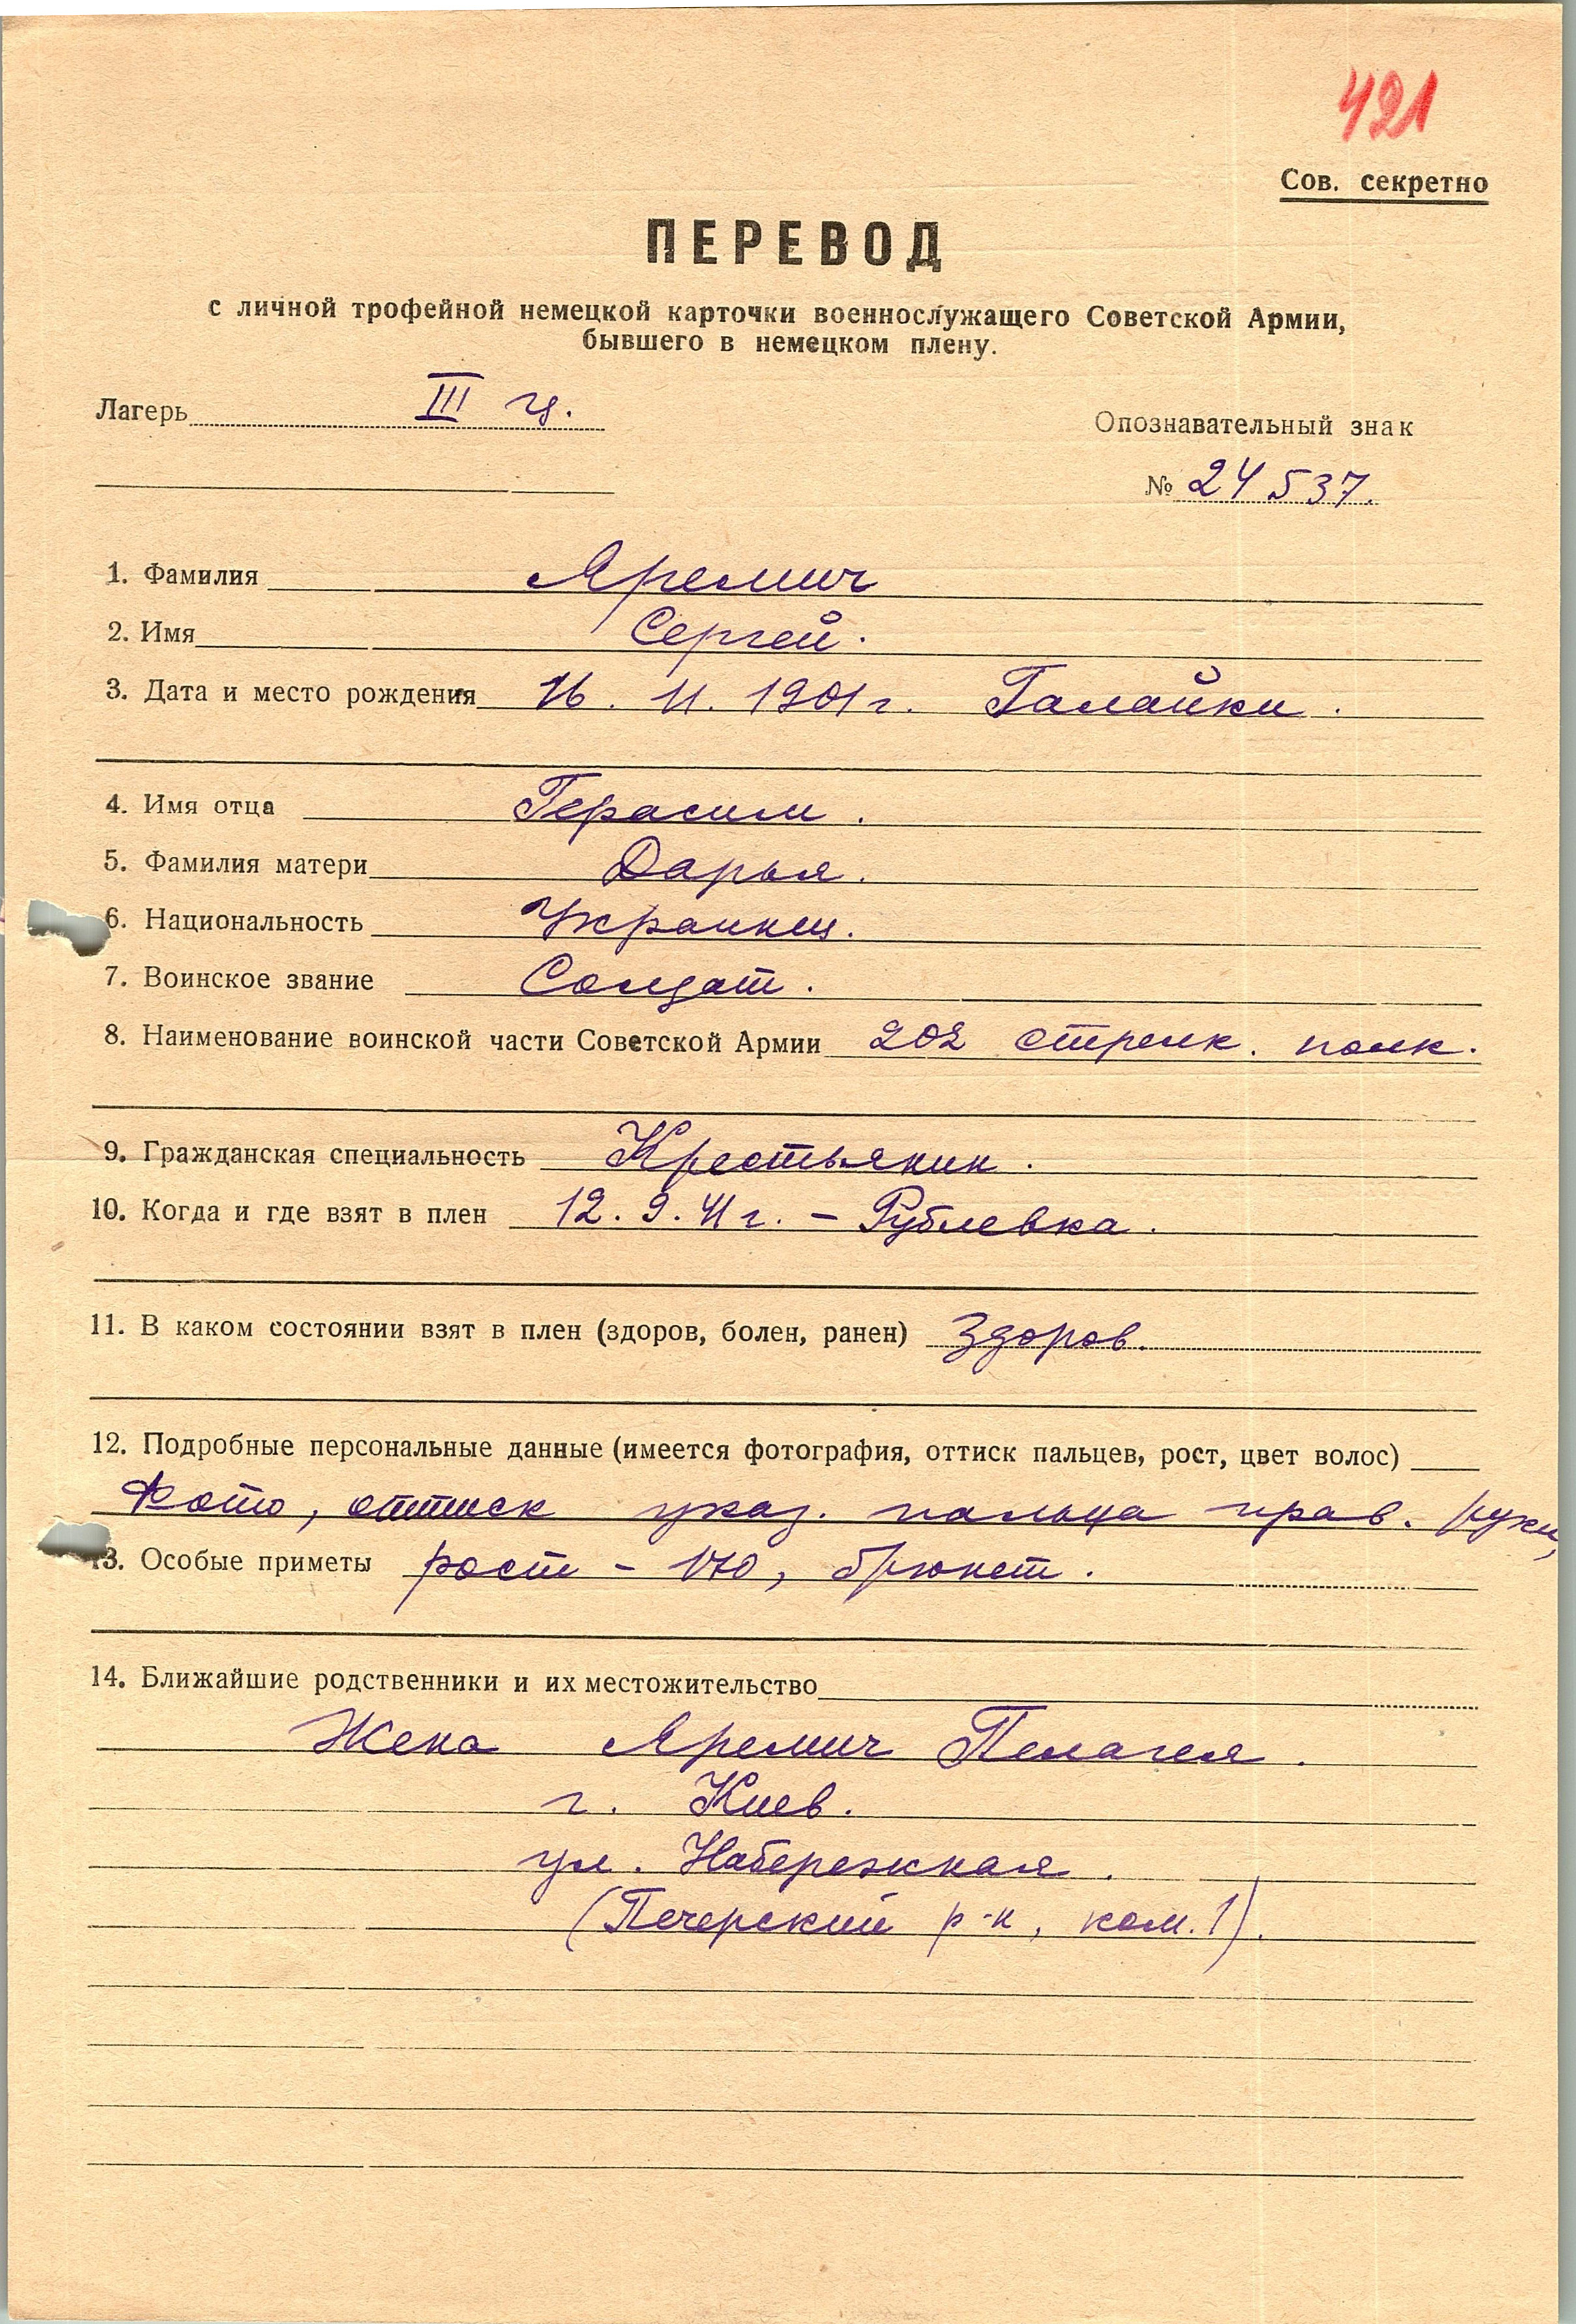 421
Сов. секретно
ПЕРЕВОД
с личной трофейной немецкой карточки военнослужащего Советской Армии,
бывшего в немецком плену.
Лагерь III ц.
Опознавательный знак
№ 24537.
1. Фамилия Яремич
2. Имя Сергей.
3. Дата и место рождения 16. 11. 1901 г. Галайки.
4. Имя отца Герасим.
5. Фамилия матери Дарья.
6. Национальность Украинец.
7. Воинское звание Солдат.
8. Наименование воинской части Советской Армии 202 стрелк. полк.
9. Гражданская специальность Крестьянин.
10. Когда и где взят в плен 12. 9. 41 г. – Рублевка.
11. В каком состоянии взят в плен (здоров, болен, ранен) Здоров.
12. Подробные персональные данные (имеется фотография, оттиск пальцев, рост, цвет волос)
Фото, оттиск указ. пальца прав. руки,
13. Особые приметы рост – 170, брюнет.
14. Ближайшие родственники и их местожительство
Жена Яремич Пелагея.
г. Киев.
ул. Набережная.
(Печерский р-н, ком. 1).